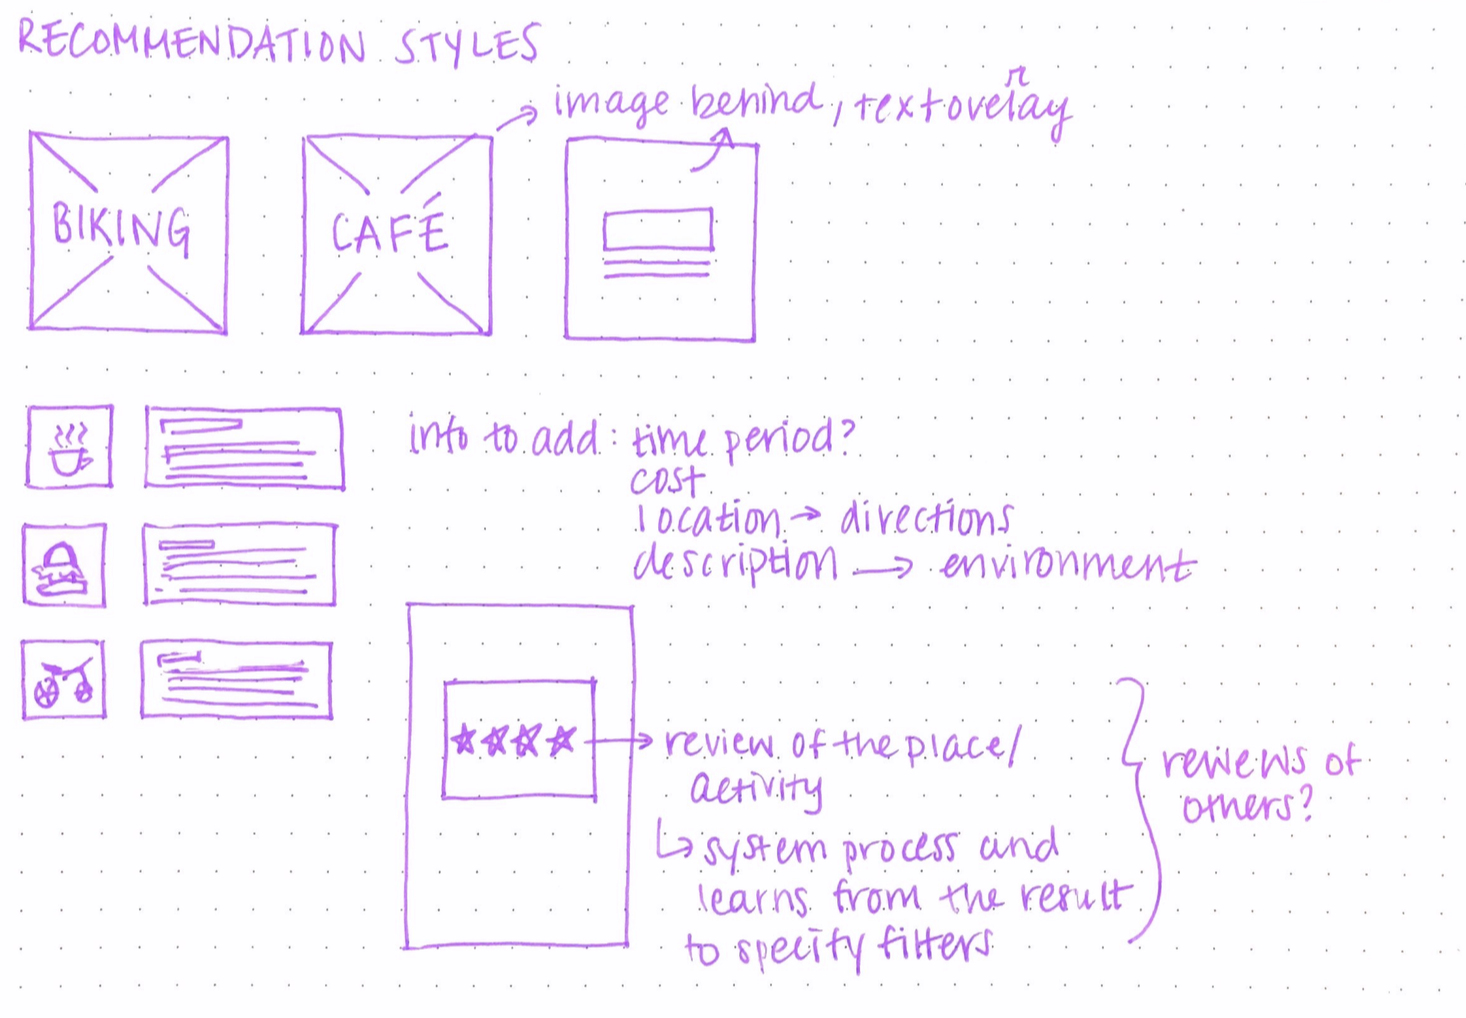 RECOMMENDATION STYLES
image behind, text overlay
r
BIKING
CAFÉ
info to add: time period?
cost
location → directions
description → environment
review of the place/
activity
↳ system process and
learns from the result
to specify filters
reviews of
others?